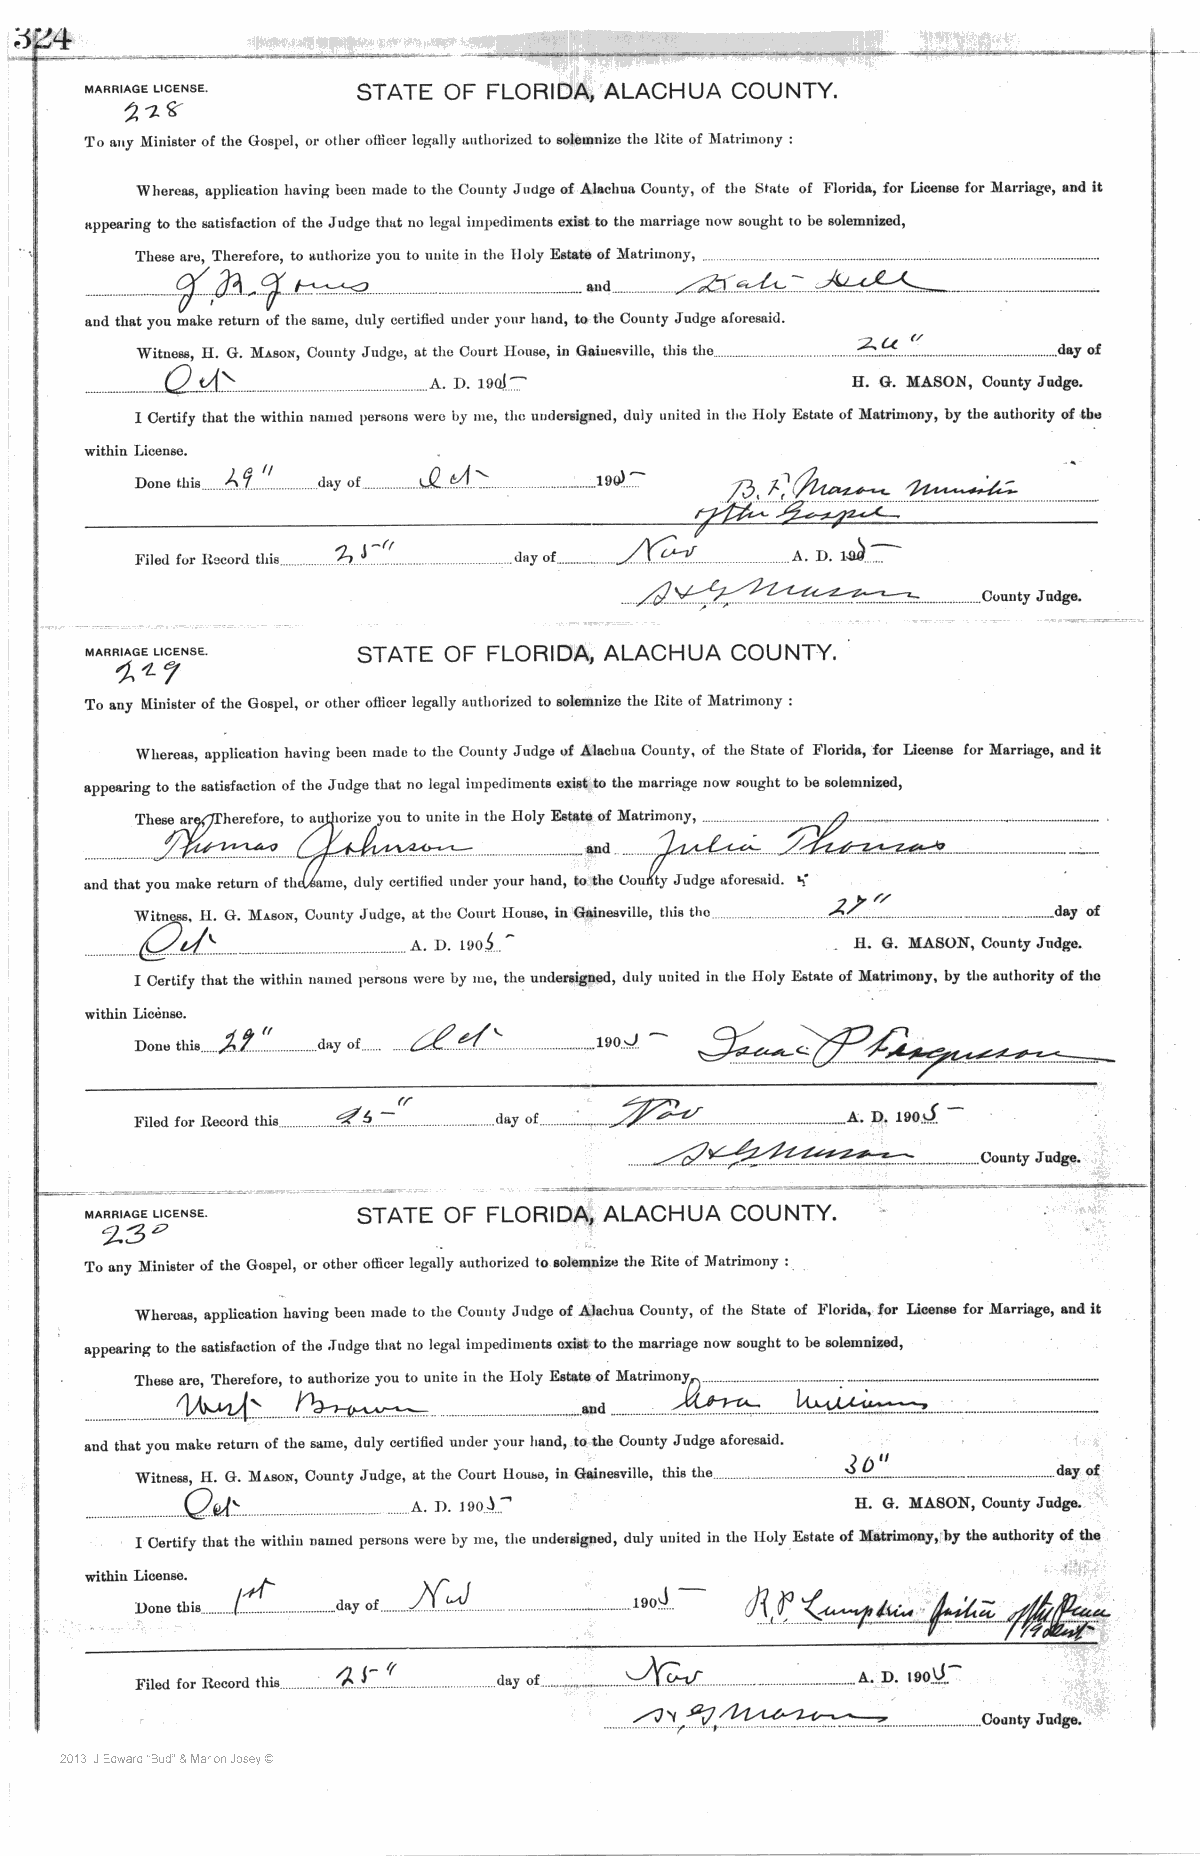 324
MARRIAGE LICENSE.
STATE OF FLORIDA, ALACHUA COUNTY.
228
To any Minister of the Gospel, or other officer legally authorized to solemnize the Rite of Matrimony :
Whereas, application having been made to the County Judge of Alachua County, of the State of Florida, for License for Marriage, and it
appearing to the satisfaction of the Judge that no legal impediments exist to the marriage now sought to be solemnized,
These are, Therefore, to authorize you to unite in the Holy Estate of Matrimony,
J. R. Jones and Kate Hill
and that you make return of the same, duly certified under your hand, to the County Judge aforesaid.
Witness, H. G. MASON, County Judge, at the Court House, in Gainesville, this the day of
Oct A. D. 1905 H. G. MASON, County Judge.
I Certify that the within named persons were by me, the undersigned, duly united in the Holy Estate of Matrimony, by the authority of the
within License.
Done this 29" day of Oct 1905
B. F. Mason Minister
of the Gospel
Filed for Record this 25" day of Nov A. D. 1905
H. G. Mason County Judge.
MARRIAGE LICENSE.
STATE OF FLORIDA, ALACHUA COUNTY.
229
To any Minister of the Gospel, or other officer legally authorized to solemnize the Rite of Matrimony :
Whereas, application having been made to the County Judge of Alachua County, of the State of Florida, for License for Marriage, and it
appearing to the satisfaction of the Judge that no legal impediments exist to the marriage now sought to be solemnized,
These are, Therefore, to authorize you to unite in the Holy Estate of Matrimony,
Thomas Johnson and Julia Thomas
and that you make return of the same, duly certified under your hand, to the County Judge aforesaid.
Witness, H. G. MASON, County Judge, at the Court House, in Gainesville, this the 27" day of
Oct A. D. 1905 H. G. MASON, County Judge.
I Certify that the within named persons were by me, the undersigned, duly united in the Holy Estate of Matrimony, by the authority of the
within License.
Done this 29" day of Oct 1905 Isaac P Fergusson
Filed for Record this 25" day of Nov A. D. 1905
H G Mason County Judge.
MARRIAGE LICENSE.
STATE OF FLORIDA, ALACHUA COUNTY.
230
To any Minister of the Gospel, or other officer legally authorized to solemnize the Rite of Matrimony :
Whereas, application having been made to the County Judge of Alachua County, of the State of Florida, for License for Marriage, and it
appearing to the satisfaction of the Judge that no legal impediments exist to the marriage now sought to be solemnized,
These are, Therefore, to authorize you to unite in the Holy Estate of Matrimony,
West Brown and Cora Williams
and that you make return of the same, duly certified under your hand, to the County Judge aforesaid.
Witness, H. G. MASON, County Judge, at the Court House, in Gainesville, this the 30" day of
Oct A. D. 1905 H. G. MASON, County Judge.
I Certify that the within named persons were by me, the undersigned, duly united in the Holy Estate of Matrimony, by the authority of the
within License.
Done this 1st day of Nov 1905 R. P. Lumpkin Justice of the Peace
19 Dist
Filed for Record this 25" day of Nov A. D. 1905
H. G. Mason County Judge.
2013 J Edward "Bud" & Marion Josey ©